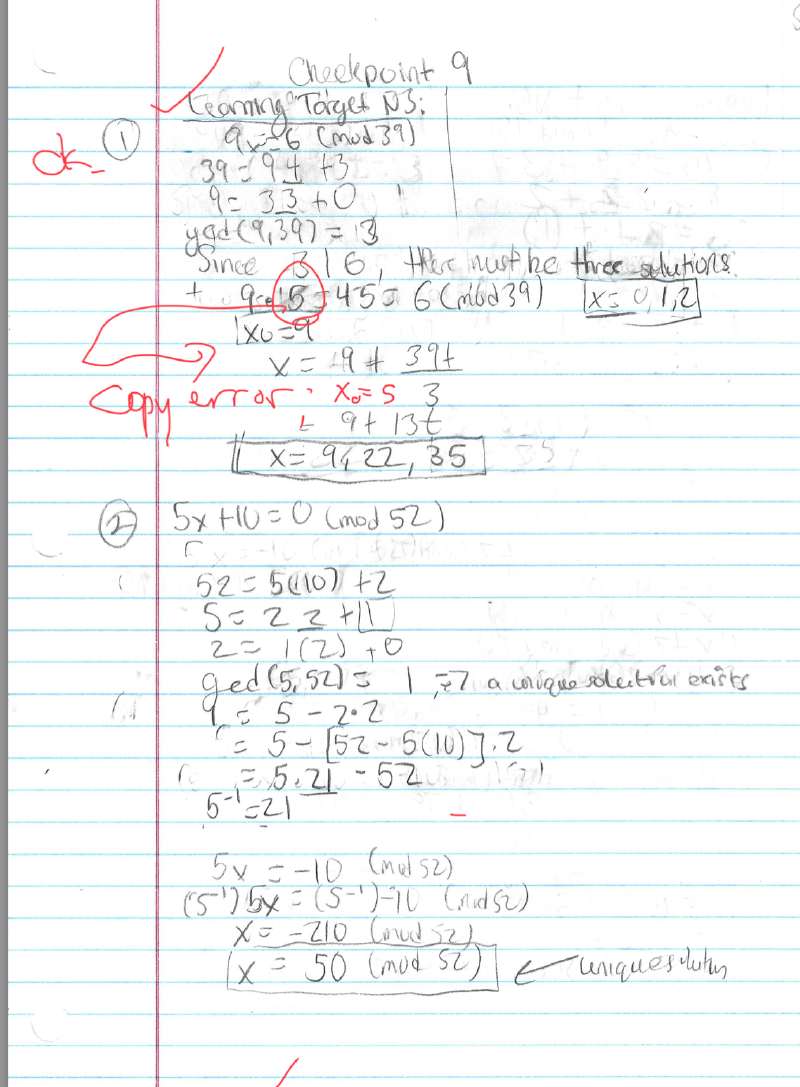 Checkpoint 9
Learning Target N3:
ok.
① 9x ≡ 6 (mod 39)
39 = 9 4 + 3
9 = 3 3 + 0
gcd(9,39) = 3
Since 3 | 6, there must be three solutions.
9 · 5 = 45 = 6 (mod 39) x = 0, 1, 2
x₀ = 9
x = 9 + 39t
copy error · x₀ = 5 3
= 9 + 13t
x = 9, 22, 35
② 5x + 10 = 0 (mod 52)
52 = 5(10) + 2
5 = 2 2 + 1
2 = 1(2) + 0
gcd(5, 52) = 1 => a unique solution exists
1 = 5 - 2·2
= 5 - [52 - 5(10)]·2
= 5·21 - 52
5⁻¹ = 21
5x = -10 (mod 52)
(5⁻¹) 5x = (5⁻¹) -10 (mod 52)
x = -210 (mod 52)
x = 50 (mod 52) unique solution